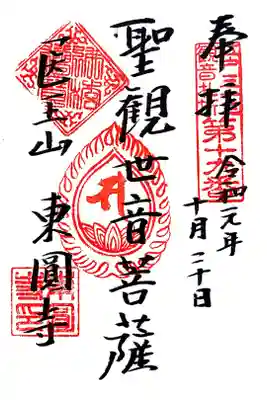 奉拝
第十九番
令和元年
十月二十日
聖観世音菩薩
医王山
東圓寺